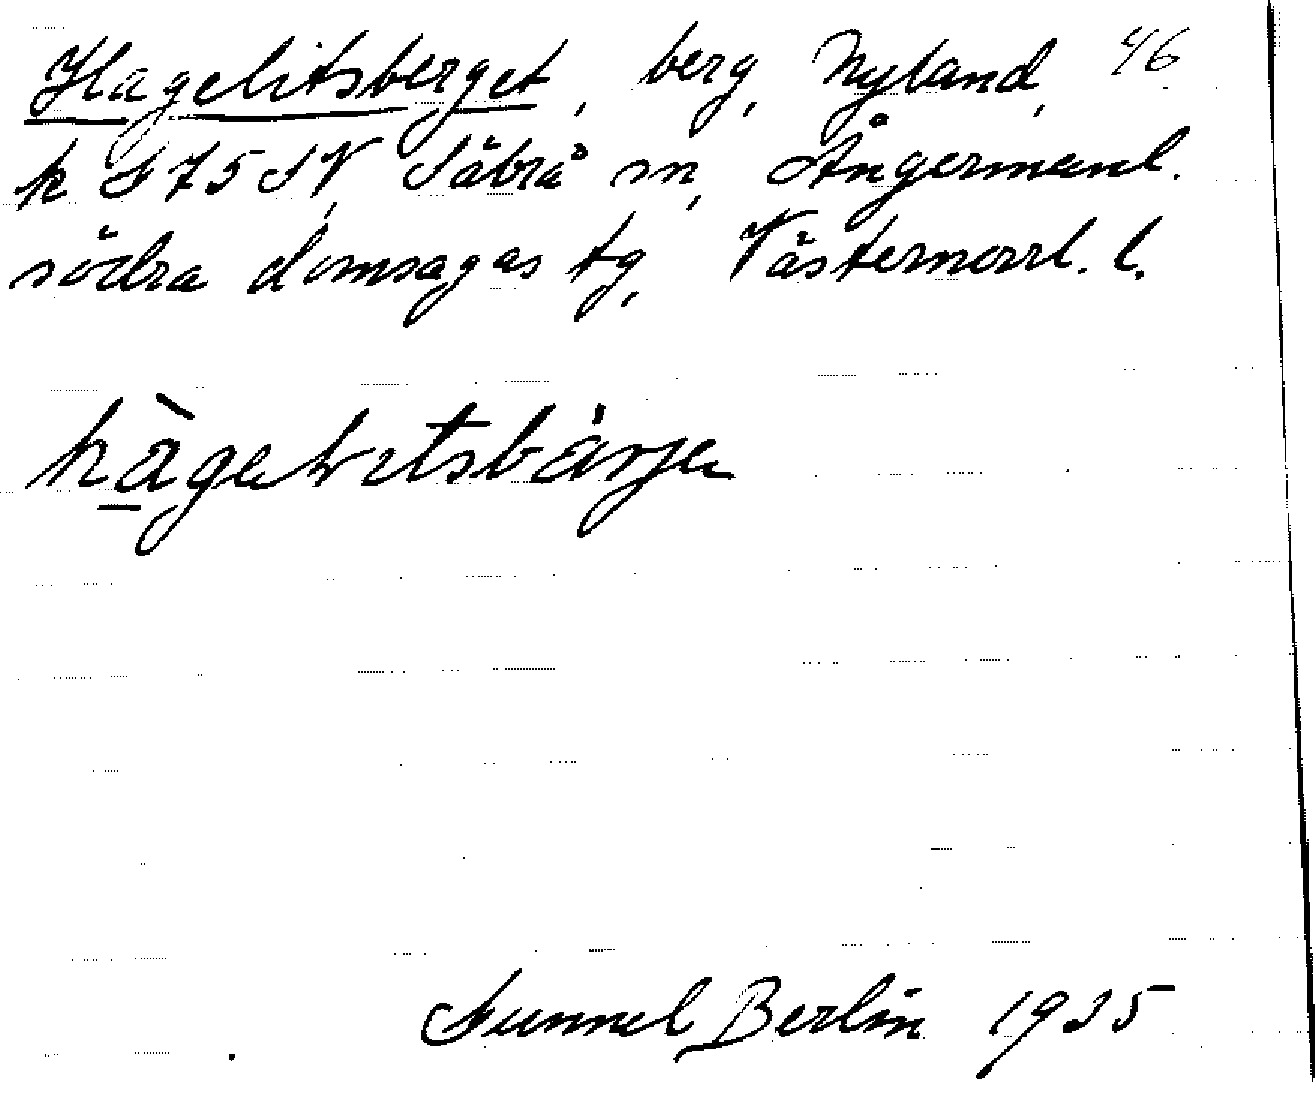 Hagelitsberget, berg, Nyland, 46
k S 75 SV, Säbrå sn, Ångermanl.
södra domsagas tg, Västernorrl. l.
Gunnel Berlin 1935